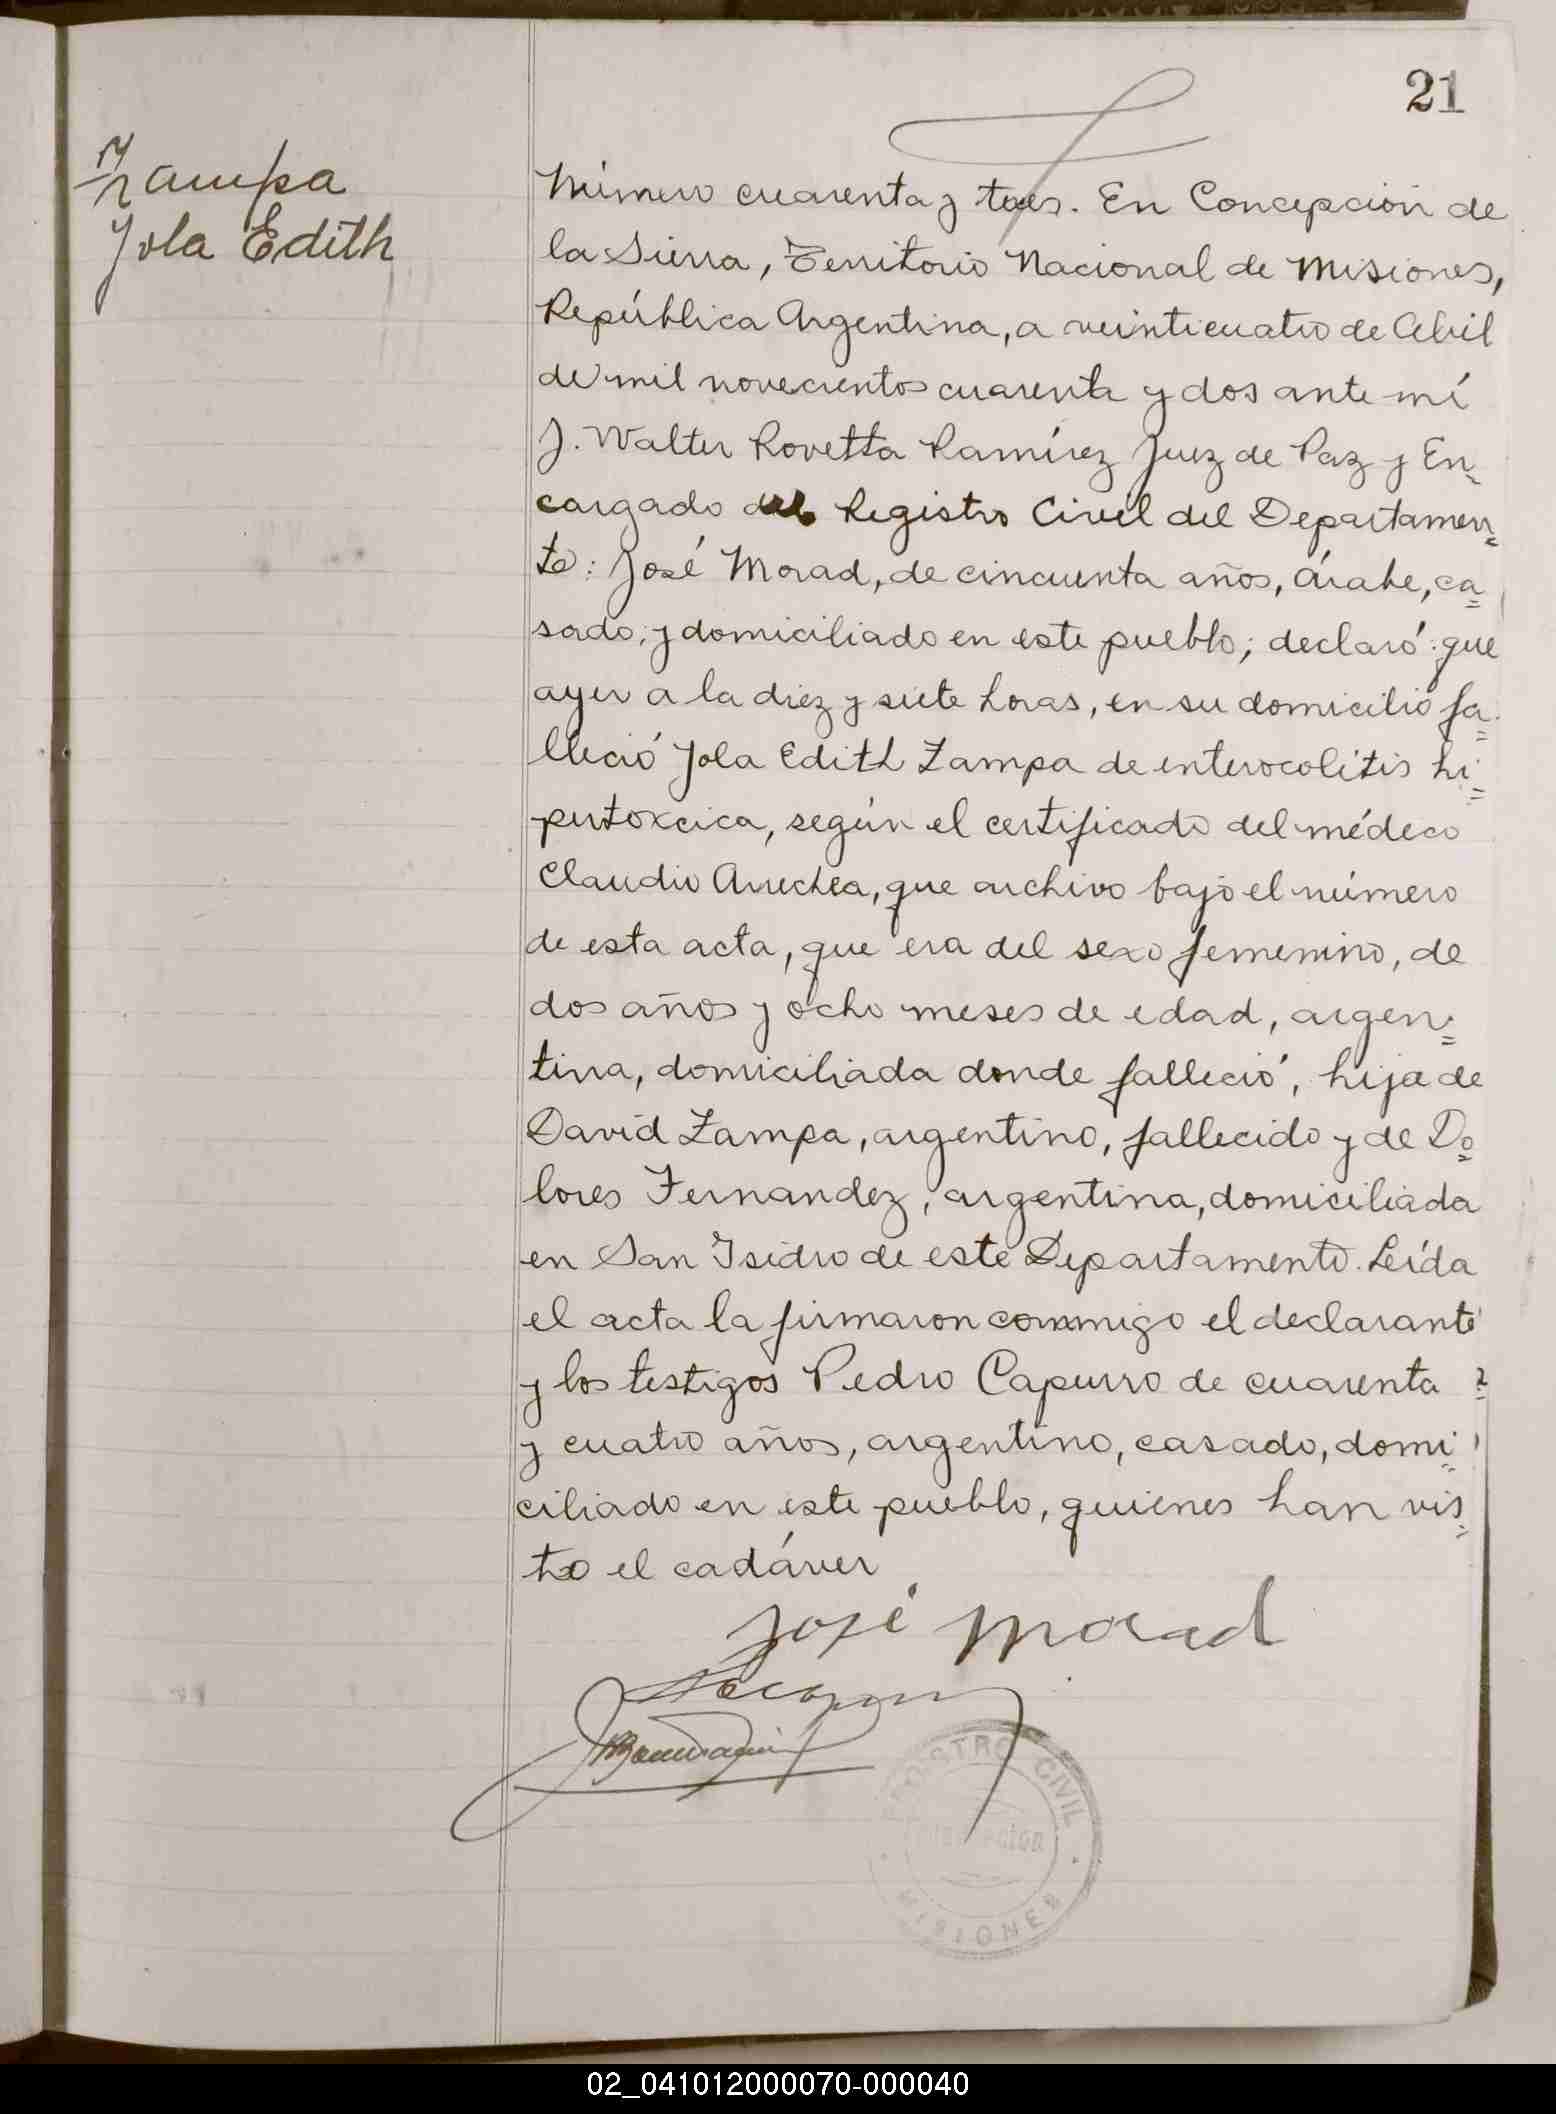 21
Zampa
Yola Edith
Número cuarenta y tres. En Concepción de
la Sierra, Territorio Nacional de Misiones,
República Argentina, a veinticuatro de Abril
de mil novecientos cuarenta y dos ante mí
J. Walter Rovetta Ramírez Juez de Paz y En=
cargado del Registro Civil del Departamen=
to: José Morad, de cincuenta años, árabe, ca=
sado, y domiciliado en este pueblo; declaró: que
ayer a la diez y siete horas, en su domicilio fa=
lleció Yola Edith Zampa de enterocolitis hi=
pertoxcica, según el certificado del médico
Claudio Arrechea, que archivo bajo el número
de esta acta, que era del sexo femenino, de
dos años y ocho meses de edad, argen=
tina, domiciliada donde falleció, hija de
David Zampa, argentino, fallecido y de Do=
lores Fernandez, argentina, domiciliada
en San Isidro de este Departamento. Leída
el acta la firmaron conmigo el declarante
y los testigos Pedro Capurro de cuarenta
y cuatro años, argentino, casado, domi=
ciliado en este pueblo, quienes han vis=
to el cadáver
José Morad
REGISTRO CIVIL
Concepción
MISIONES
02_041012000070-000040